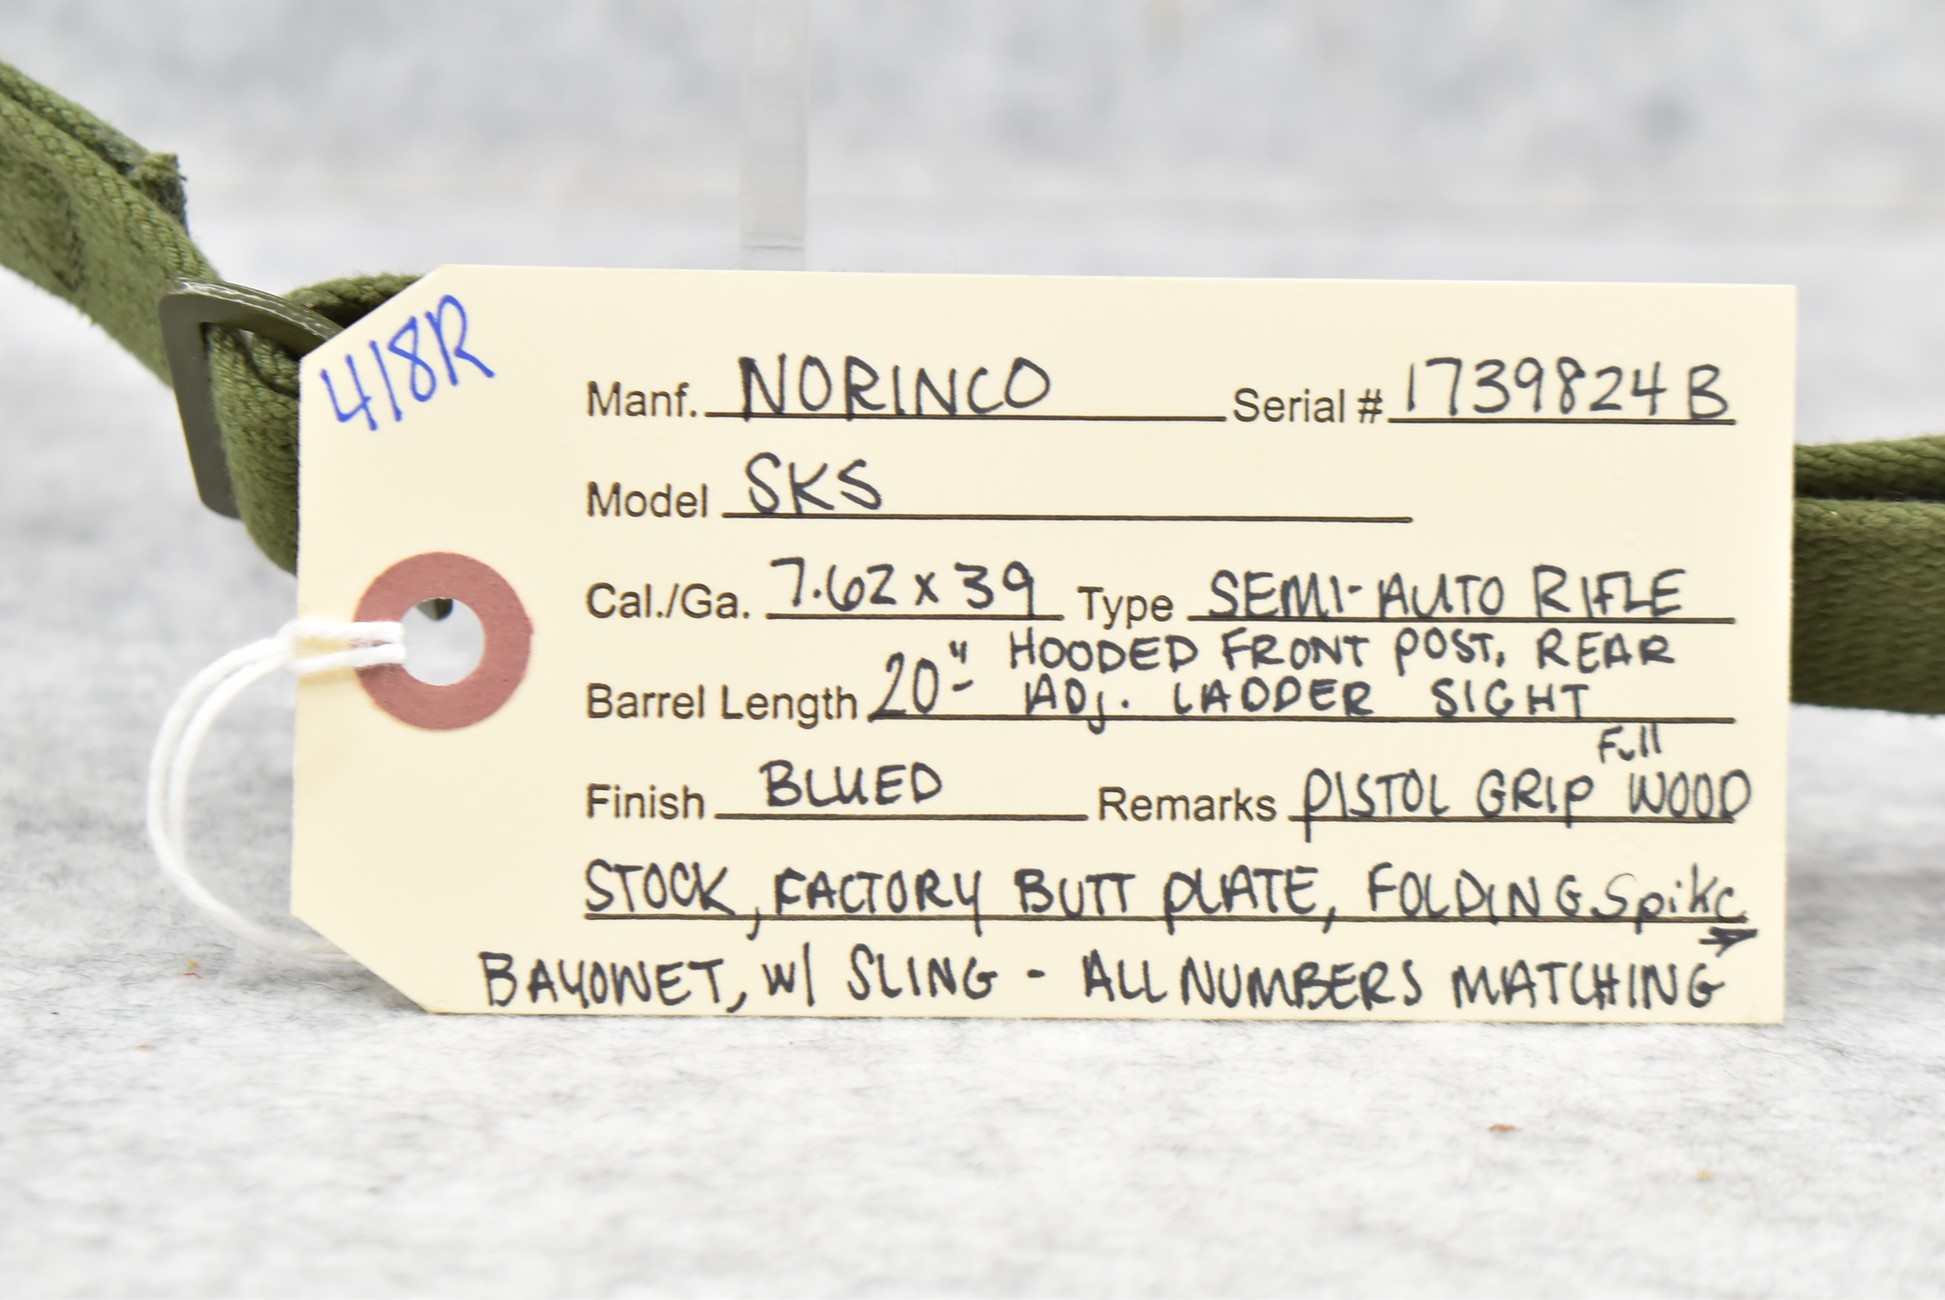 418R
Manf. NORINCO Serial # 1739824B
Model SKS
Cal./Ga. 7.62 x 39 Type SEMI-AUTO RIFLE
HOODED FRONT POST, REAR
Barrel Length 20" - ADJ. LADDER SIGHT
Full
Finish BLUED Remarks PISTOL GRIP WOOD
STOCK, FACTORY BUTT PLATE, FOLDING Spike
BAYONET, W/ SLING - ALL NUMBERS MATCHING